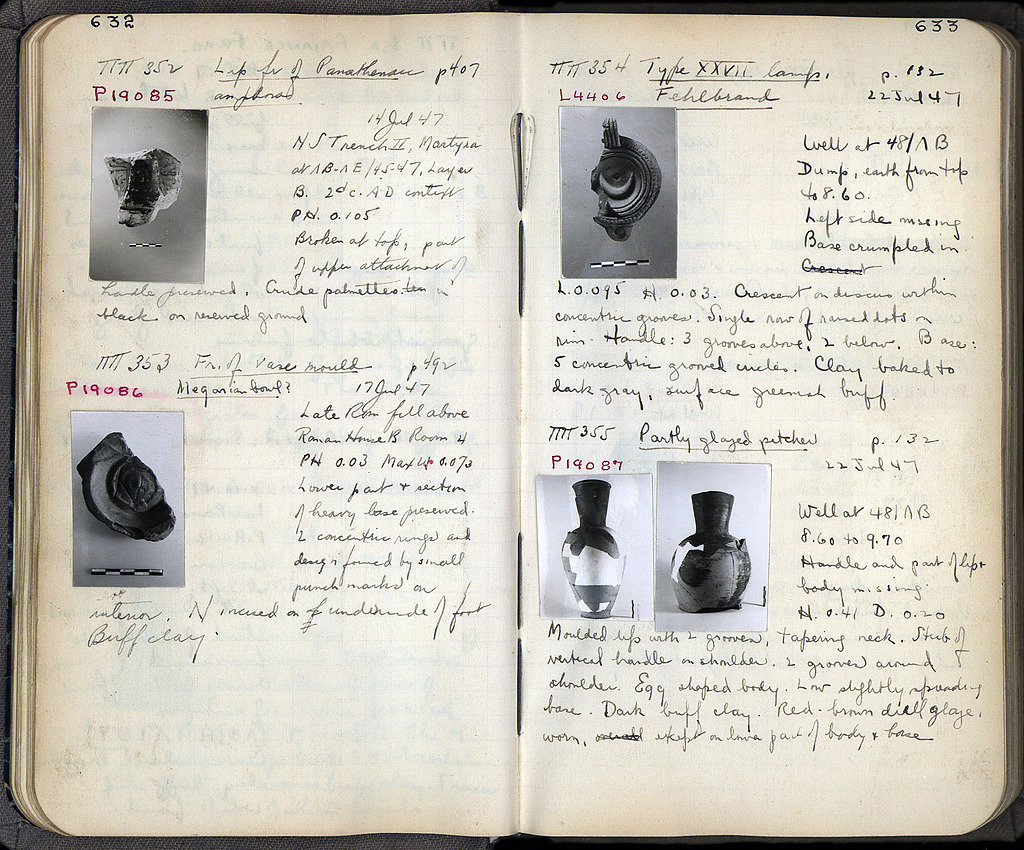 632
ΠΠ 352 Lip fr of Panathenaic p407
P19085 amphora
14 Jul 47
NS Trench II, Martyra
at ΛB-ΛE/45-47, Layer
B. 2d c. A.D context
PH. 0.105
Broken at top; part
of upper attachment of
handle preserved. Crude palmettes in
black on reserved ground
ΠΠ 353 Fr. of vase mould p492
P19086 Megarian bowl? 17 Jul 47
Late Rom fill above
Roman House B Room 4
PH 0.03 Max W 0.073
Lower part + section
of heavy base preserved.
2 concentric rings and
design formed by small
punch marks on
interior. N incised on underside of foot
Buff clay.
633
ΠΠ 354 Type XXVII lamp, p. 132
L4406 Fehlbrand 22 Jul 47
Well at 48/ΛB
Dump, earth from top
to 8.60.
Left side missing
Base crumpled in
Crescent
L. 0.095 H. 0.03. Crescent on discus within
concentric grooves. Single row of raised dots on
rim. Handle: 3 grooves above, 2 below. Base:
5 concentric grooved circles. Clay baked to
dark gray, surface greenish buff.
ΠΠ 355 Partly glazed pitcher p. 132
P19087 22 Jul 47
Well at 48/ΛB
8.60 to 9.70
Handle and part of lip +
body missing
H. 0.41 D. 0.20
Moulded lip with 2 grooves, tapering neck. Stub of
vertical handle on shoulder. 2 grooves around
shoulder. Egg shaped body. Low slightly spreading
base. Dark buff clay. Red-brown dull glaze,
worn, overall exept on lower part of body & base